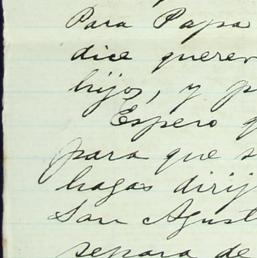 Para Papa
dice querer
hijos, y p
Espero q
para que s
hagas dirij
San Agust
separa de